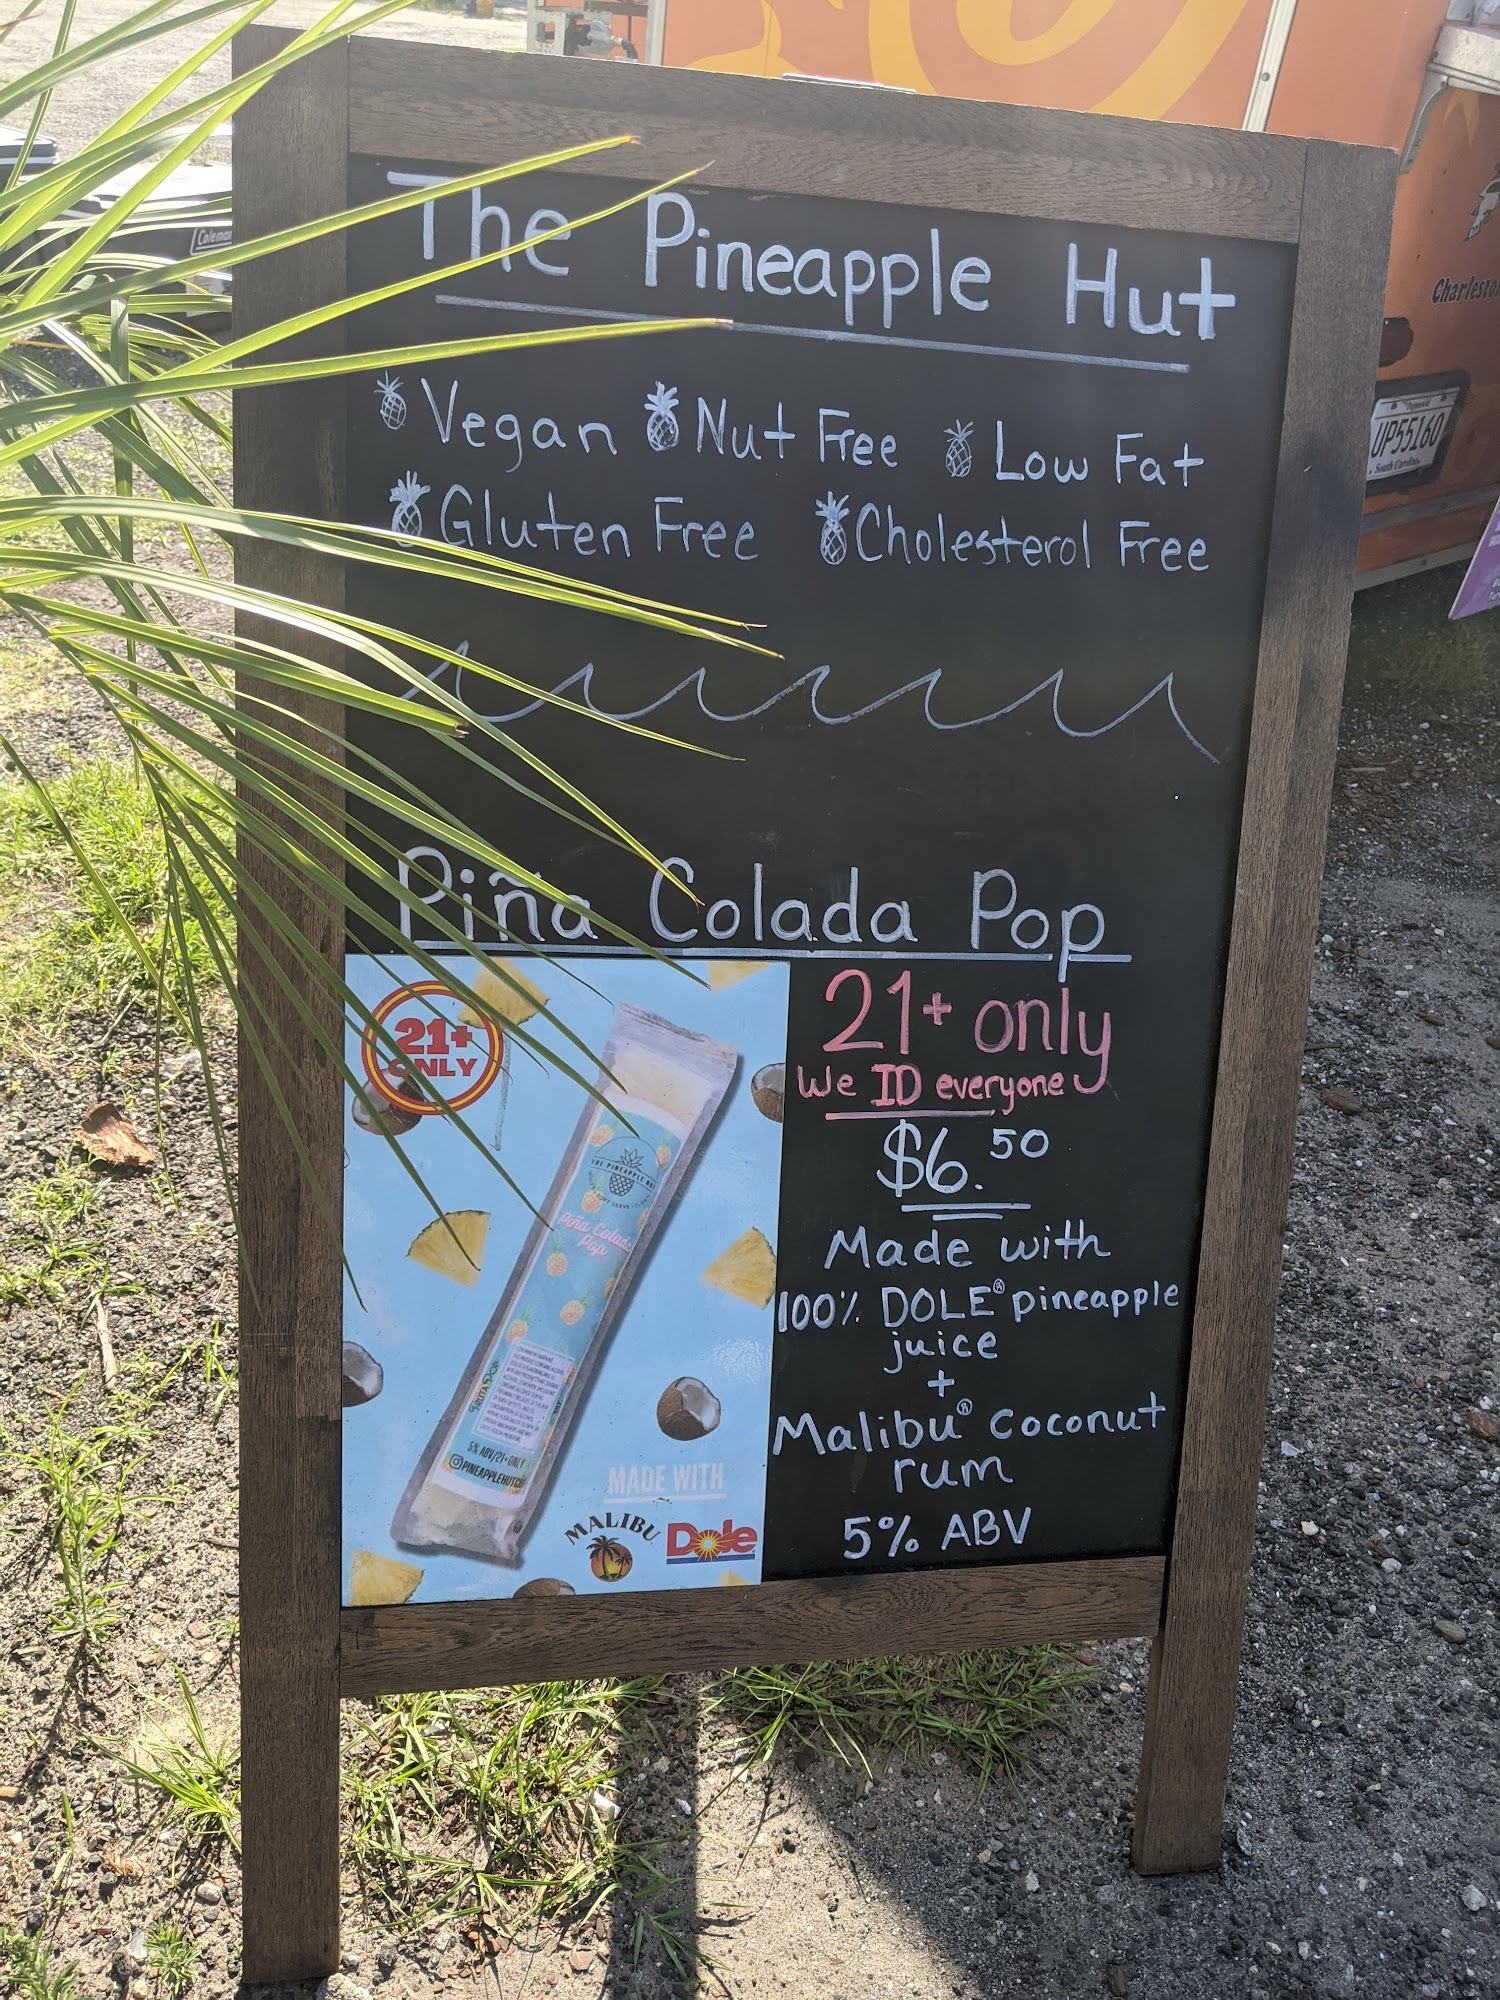 Coleman
Charleston
UP55160
South Carolina
The Pineapple Hut
Vegan Nut Free Low Fat
Gluten Free Cholesterol Free
Piña Colada Pop
21+
ONLY
THE PINEAPPLE HUT
Piña Colada
Pop
5% ABV/21+ ONLY
MADE WITH
MALIBU Dole
21+ only
We ID everyone
$6.50
Made with
100% DOLE® pineapple
juice
+
Malibu® coconut
rum
5% ABV